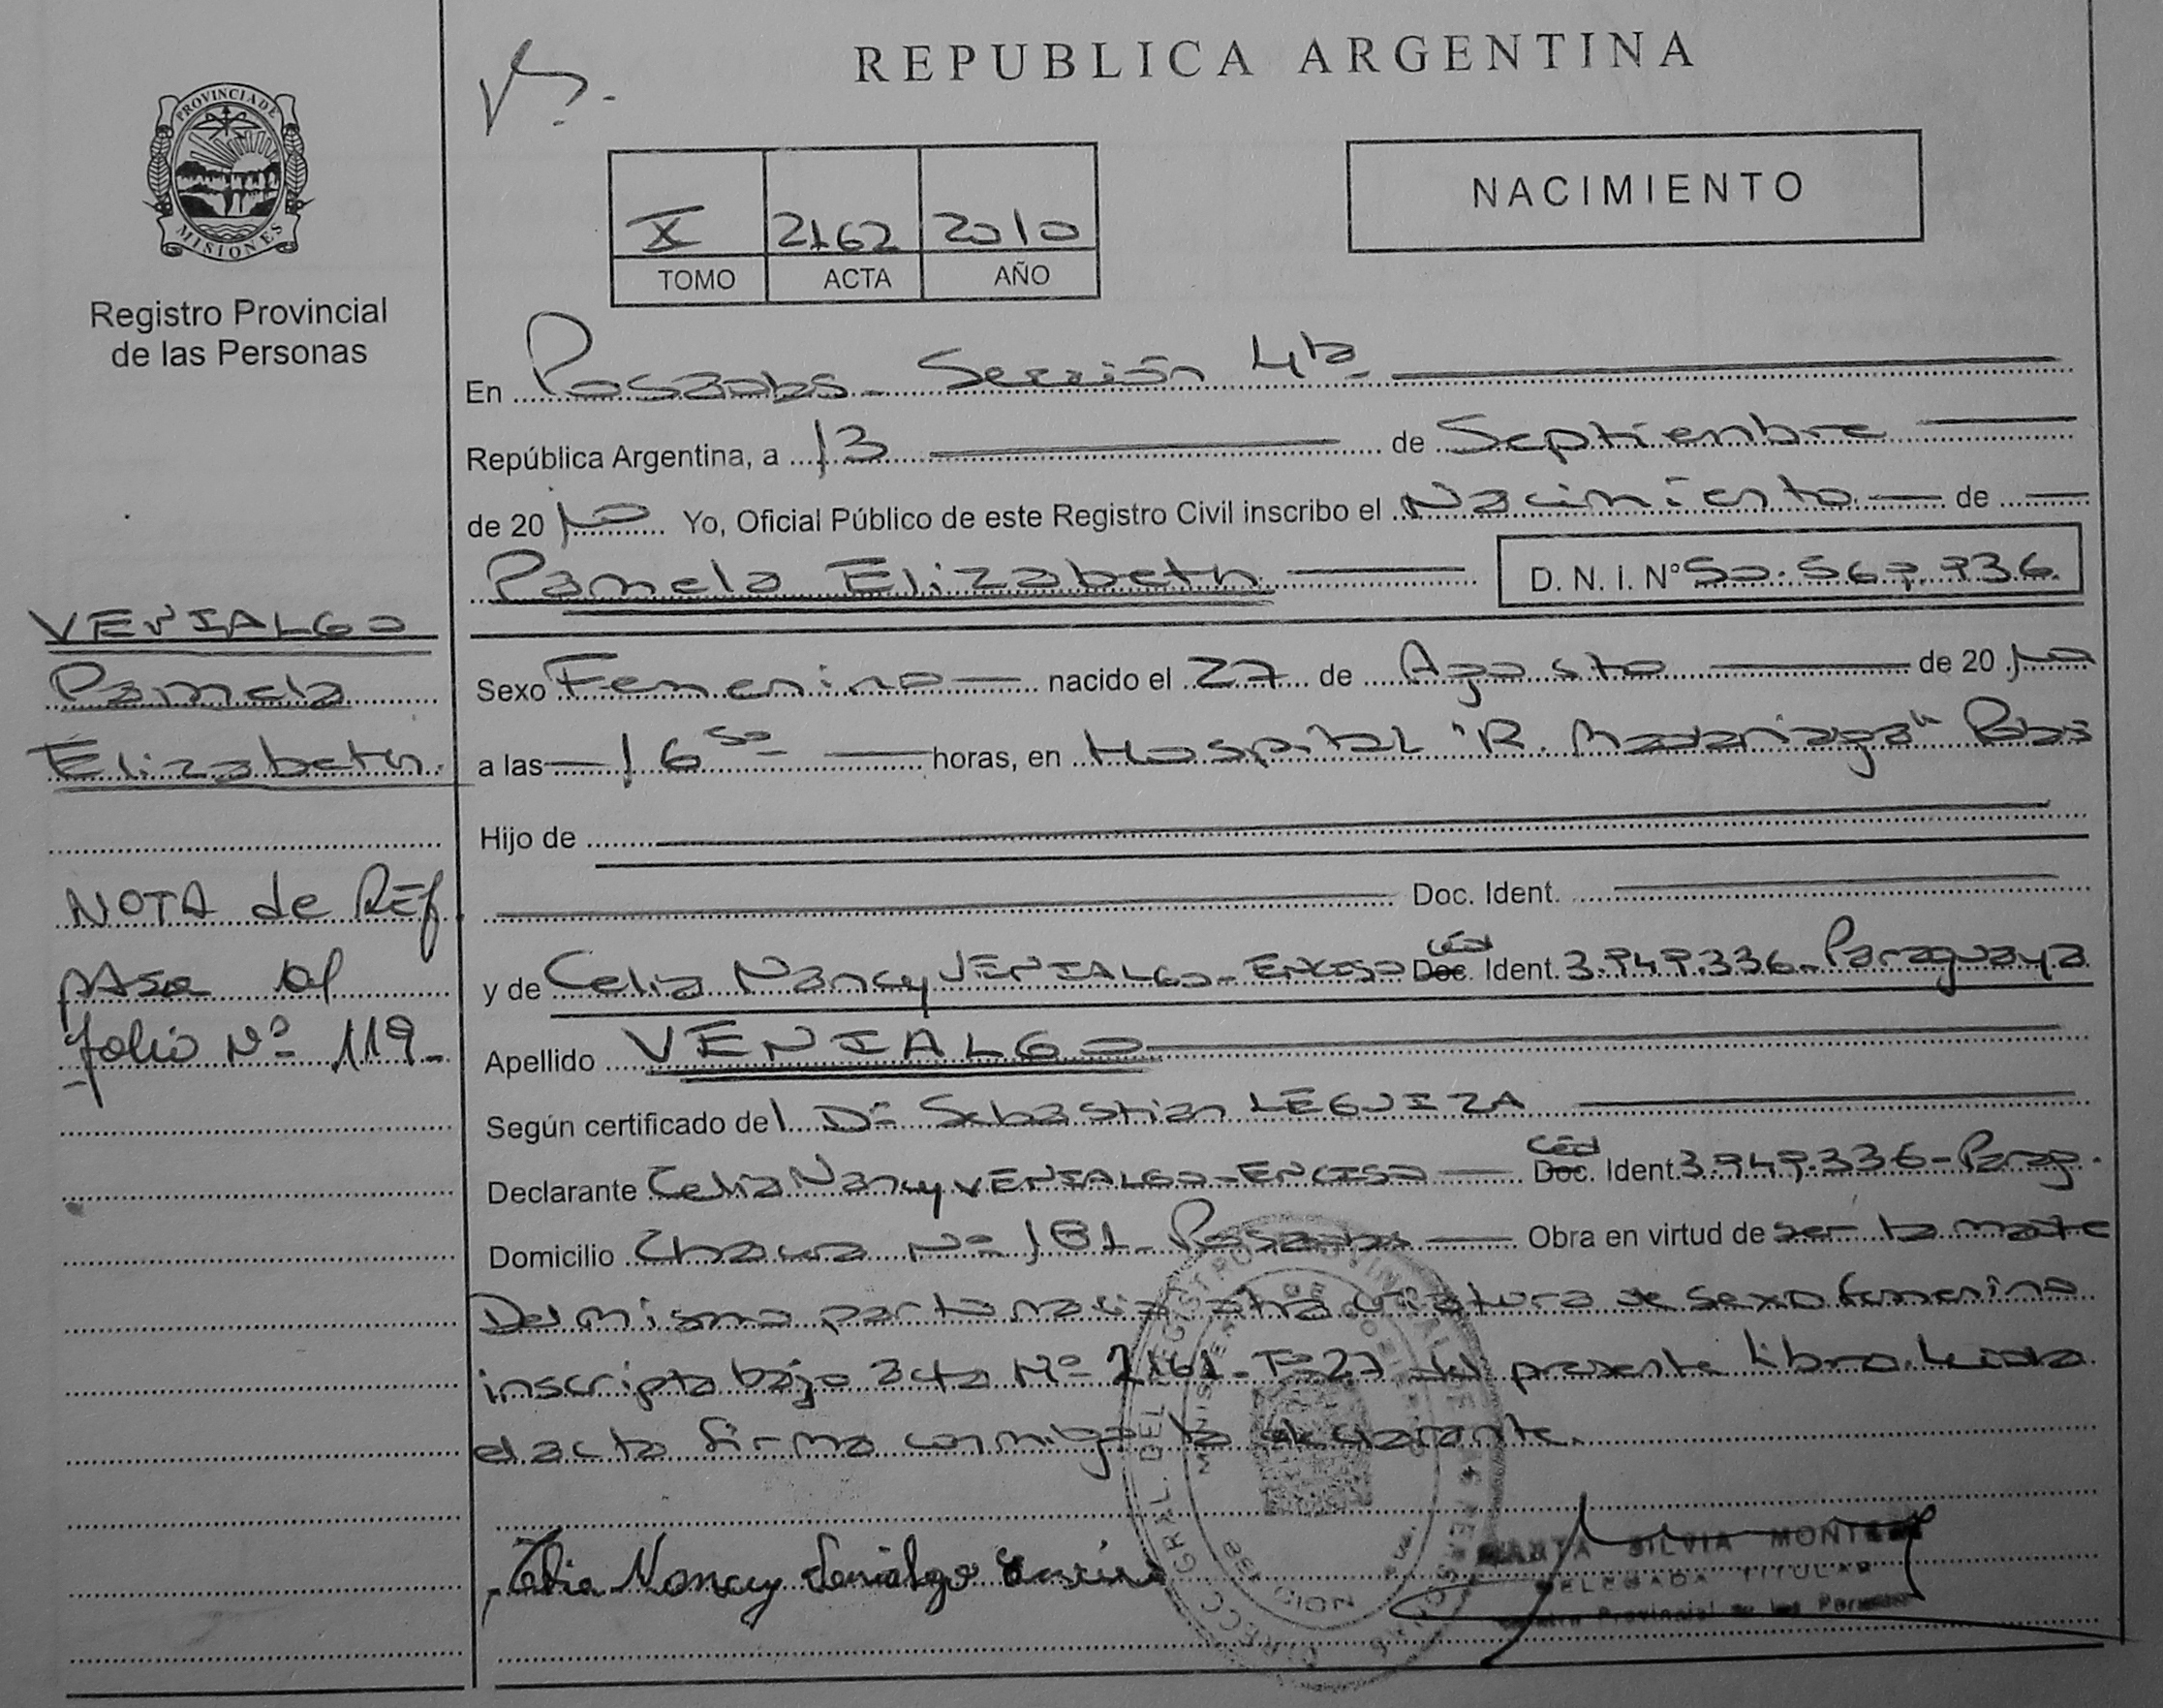 REPUBLICA ARGENTINA
PROVINCIA DE
MISIONES
Registro Provincial
de las Personas
X 2162 2010
TOMO ACTA AÑO
NACIMIENTO
En Posadas - Sección 4ta
República Argentina, a 13 de Septiembre
de 20 10 Yo, Oficial Público de este Registro Civil inscribo el Nacimiento de
Pamela Elizabeth D. N. I. Nº
VENIALGO
Pamela
Elizabeth
NOTA de REf
pasa al
folio Nº 119-
Sexo Femenino nacido el 27 de Agosto de 20 10
a las 16 50 horas, en Hospital "R. Madariaga" Pdas
Hijo de
Doc. Ident.
y de Celia Nancy VENIALGO - ENCISO Céd Doc. Ident. Paraguaya
Apellido VENIALGO
Según certificado del Dr Sebastian LEGUIZA
Declarante Celia Nancy VENIALGO - ENCISO Céd Doc. Ident. Parag.
Domicilio Nº 181 - Posadas Obra en virtud de ser la madre
Del mismo parto nació otra criatura de sexo femenino
inscripta bajo acta Nº 2161 - Fº 27 del presente libro. Leida
el acta firma conmigo la declarante.
Celia Nancy Venialgo Enciso
SILVIA
DELEGADA TITULAR
Registro Provincial de las Personas